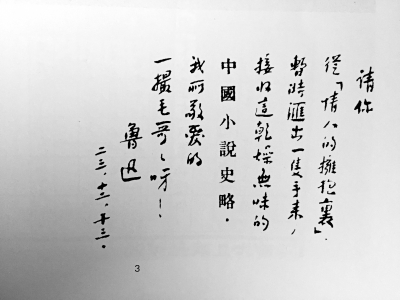 請你
從「情人的擁抱裏」,
暫時匯出一隻手來,
接收這乾燥無味的
中國小說史略.
我所敬愛的
一撮毛哥〻呀!
魯迅
二三、十二、廿三。
3